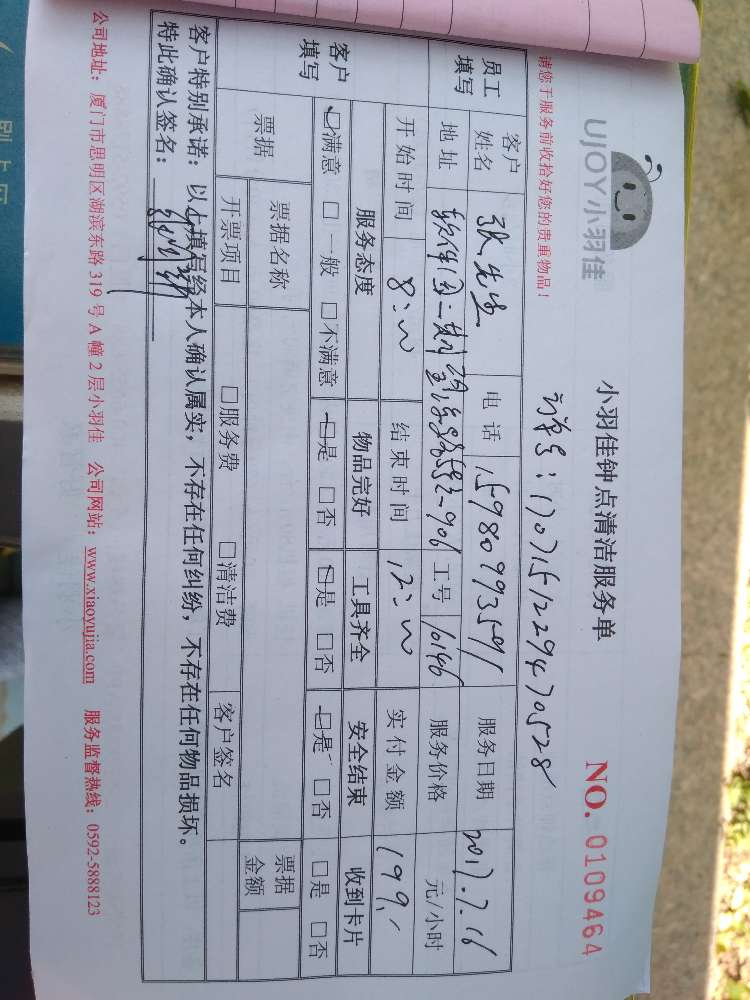 UJOY小羽佳
小羽佳钟点清洁服务单
NO. 0109464
请您于服务前收拾好您的贵重物品！
订单号：1707151229470528
员工填写
客户姓名 张先生 电话 15980993591 服务日期 2017.7.16
地址 软件园二期 592-906 工号 10146 服务价格 元/小时
开始时间 8:00 结束时间 12:00 实付金额 199.
客户填写
服务态度 物品完好 工具齐全 安全结束 收到卡片
☑满意 □一般 □不满意 ☑是 □否 ☑是 □否 ☑是 □否 □是 □否
票据 票据名称 票据金额
开票项目 □服务费 □清洁费 客户签名
客户特别承诺：以上填写经本人确认属实，不存在任何纠纷，不存在任何物品损坏。
特此确认签名：
公司地址：厦门市思明区湖滨东路 319 号 A 幢 2 层小羽佳 公司网站：www.xiaoyujia.com 服务监督热线：0592-5888123